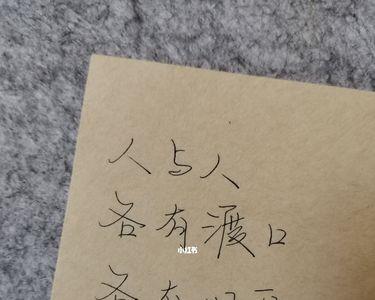 人与人
各有渡口
小红书
各有